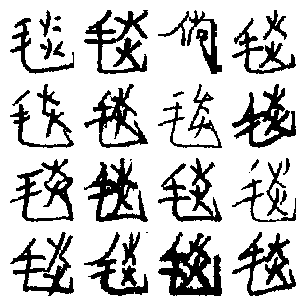 毯毯倘毯
毯毯毯毯
毯毯毯毯
毯毯毯毯